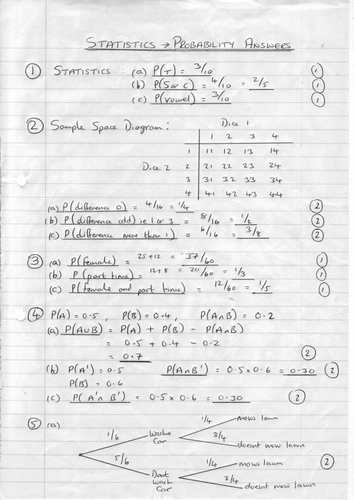 STATISTICS → PROBABILITY ANSWERS
① STATISTICS : (a) P(T) = 3/10 ①
(b) P(S or C) = 4/10 = 2/5 ①
(c) P(vowel) = 3/10 ①
② Sample Space Diagram :
Dice 1
1 2 3 4
1 11 12 13 14
Dice 2 2 21 22 23 24
3 31 32 33 34
4 41 42 43 44
(a) P(difference 0) = 4/16 = 1/4 ②
(b) P(difference odd) ie 1 or 3 = 8/16 = 1/2 ②
(c) P(difference more than 1) = 6/16 = 3/8 ②
③ (a) P(female) = 25+12 = 37/60 ①
(b) P(part time) = 12+8 = 20/60 = 1/3 ①
(c) P(female and part time) = 12/60 = 1/5 ①
④ P(A) = 0.5 , P(B) = 0.4 , P(A∩B) = 0.2
(a) P(A∪B) = P(A) + P(B) - P(A∩B)
= 0.5 + 0.4 - 0.2
= 0.7 ②
(b) P(A') = 0.5 P(A∩B') = 0.5 x 0.6 = 0.30 ②
P(B) = 0.6
(c) P(A'∩B') = 0.5 x 0.6 = 0.30 ②
⑤ (a)
1/4 mows lawn
1/6 Washes Car
3/4 doesnt mow lawn
②
5/6 Dont wash Car
1/4 mows lawn
3/4 doesnt mow lawn